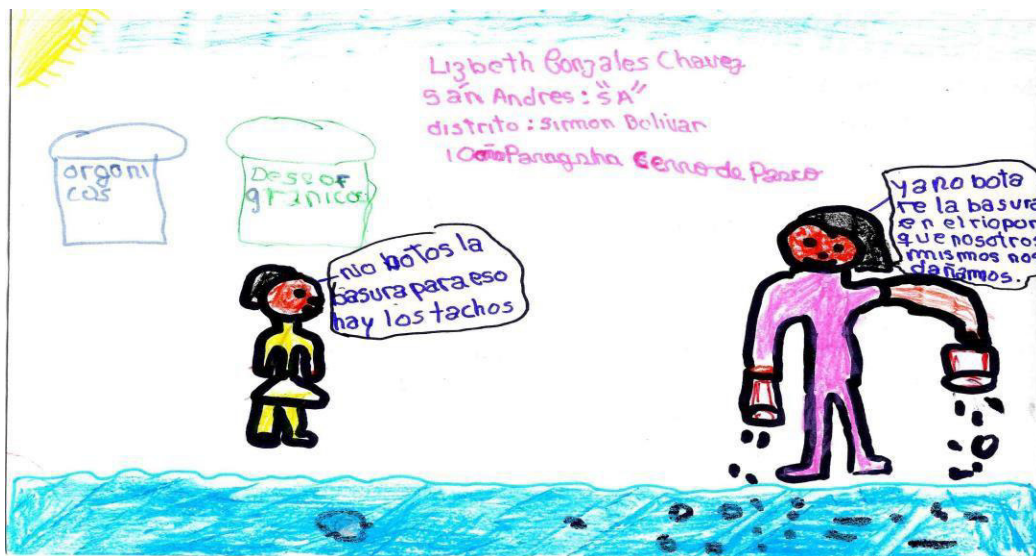 Lizbeth Gonzales Chavez
San Andres: "5A"
distrito: Simon Bolivar
10 año Paragsha Cerro de Pasco
organi
cos
Deseor
granicos
no botos la
basura para eso
hay los tachos
ya no bota
re la basura
en el rio por
que nosotros
mismos nos
dañamos.